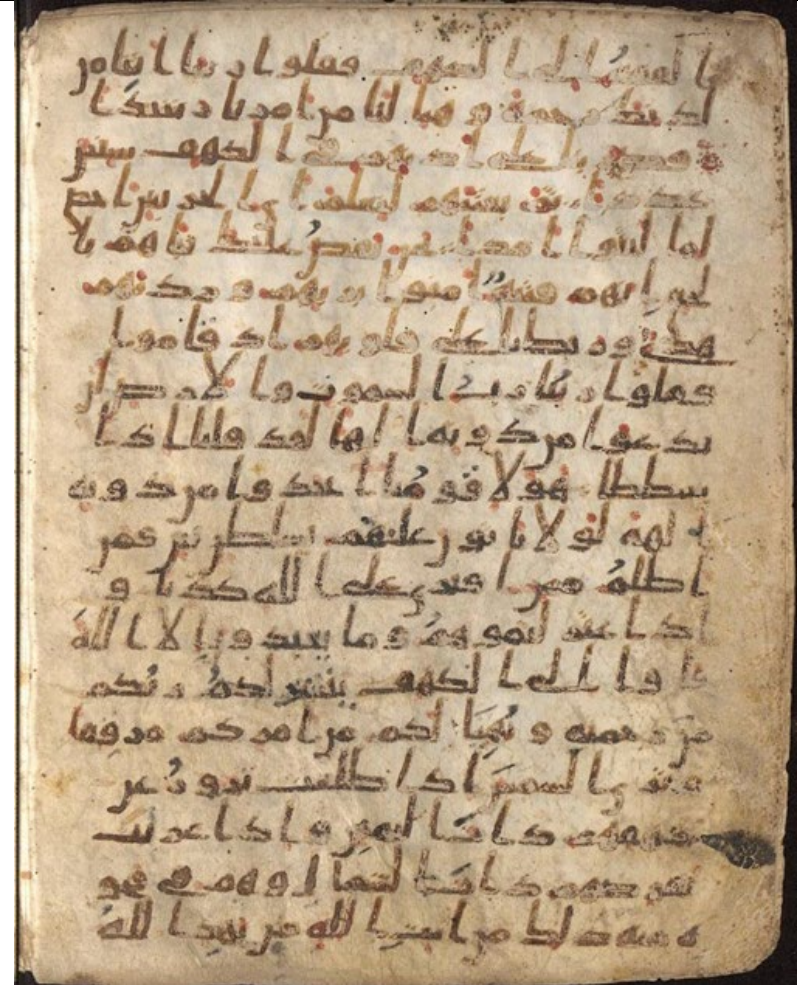 ا لفتيه ا لى ا لكهف فقلوا ربنا اتنا من
لدنك رحمه و هيا لنا من امرنا رشدا
فضربنا على اذنهم في ا لكهف سنين
عددا ثم بعثنهم لنعلم ا ى ا لحزبين احصى
لما لبثوا ا مدا نحن نقص عليك نباهم با
لحق ا نهم فتيه ا منوا بربهم و زدنهم
هدى و ربطنا على قلوبهم اذ قاموا
فقالوا ربنا رب ا لسموت وا لارض لن
ندعوا من دونه ا لها لقد قلنا اذا
شططا هولا قومنا ا تخذوا من دونه
ا لهه لولا ياتون عليهم بسلطن بين فمن
اظلم ممن ا فترى على ا لله كذبا و
اذ اعتزلتموهم و ما يعبدون الا ا لله
فاوا الى ا لكهف ينشر لكم ربكم
من رحمته و يهيا لكم من امركم مرفقا
وترى ا لشمس اذا طلعت تزور عن
كهفهم ذات ا ليمين و اذا غربت
تقرضهم ذات ا لشمال و هم في فجو
ه منه ذلك من ايت ا لله من يهد ا لله